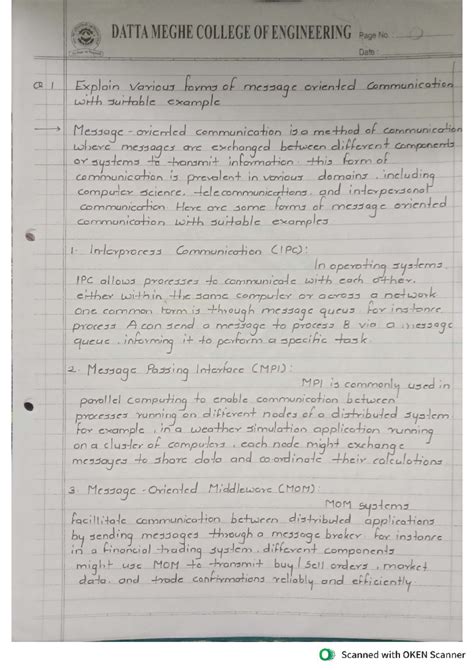 DATTA MEGHE COLLEGE OF ENGINEERING
Page No.:
Date:
Q 1 Explain various forms of message oriented communication
with suitable example
→ Message-oriented communication is a method of communication
where messages are exchanged between different components
or systems to transmit information. this form of
communication is prevalent in various domains, including
computer science, telecommunications, and interpersonal
communication Here are some forms of message oriented
communication with suitable examples
1. Interprocess Communication (IPC):
In operating systems
IPC allows processes to communicate with each other,
either within the same computer or across a network
one common form is through message queus. for instance
process A can send a message to process B via a message
queue, informing it to perform a specific task.
2. Message Passing Interface (MPI):
MPI is commonly used in
parallel computing to enable communication between
processes running on different nodes of a distributed system
for example, in a weather simulation application running
on a cluster of computers, each node might exchange
messages to share data and co.ordinate their calculations
3. Message-Oriented Middleware (MOM):
MOM systems
facillitate communication between distributed applications
by sending messages through a message broker. for instance
in a financial trading system, different components
might use MOM to transmit buy / sell orders, market
data, and trade confirmations reliably and efficiently.
Scanned with OKEN Scanner